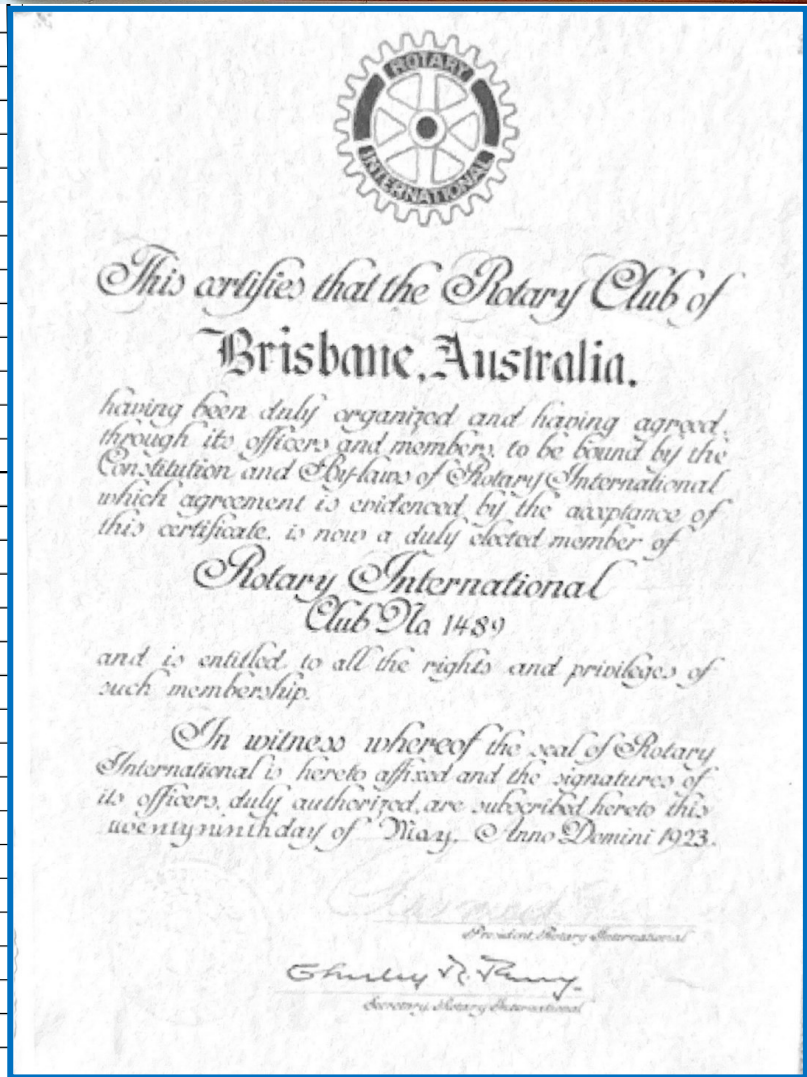 ROTARY
INTERNATIONAL
This certifies that the Rotary Club of
Brisbane, Australia.
having been duly organized and having agreed,
through its officers and members, to be bound by the
Constitution and By-laws of Rotary International
which agreement is evidenced by the acceptance of
this certificate, is now a duly elected member of
Rotary International
Club No 1489
and is entitled to all the rights and privileges of
such membership.
In witness whereof the seal of Rotary
International is hereto affixed and the signatures of
its officers, duly authorized, are subscribed hereto this
twenty ninth day of May, Anno Domini 1923.
President, Rotary International
Secretary, Rotary International